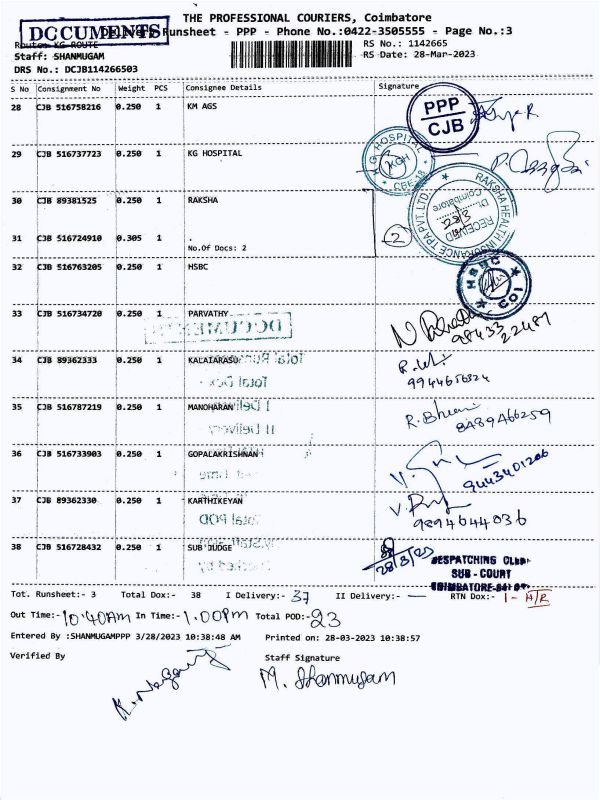 THE PROFESSIONAL COURIERS, Coimbatore
DOCUMENTS
Delivery Runsheet - PPP - Phone No.:0422-3505555 - Page No.:3
Route: KG ROUTE
RS No.: 1142665
Staff: SHANMUGAM
RS Date: 28-Mar-2023
DRS No.: DCJB114266503
S No Consignment No Weight PCS Consignee Details Signature
28 CJB 516758216 0.250 1 KM AGS
PPP
CJB
29 CJB 516737723 0.250 1 KG HOSPITAL
KG HOSPITAL
KGH
CBE-18
30 CJB 89381525 0.250 1 RAKSHA
RAKSHA HEALTH INSURANCE TPA PVT. LTD.
Coimbatore
RECEIVED
28/3
31 CJB 516724910 0.305 1 .
No.Of Docs: 2
2
32 CJB 516763205 0.250 1 HSBC
HSBC
COI
33 CJB 516734720 0.250 1 PARVATHY
98433 22481
DOCUMENTS
34 CJB 89362333 0.250 1 KALAIARASU
9944656324
35 CJB 516787219 0.250 1 MANOHARAN
8489466259
36 CJB 516733903 0.250 1 GOPALAKRISHNAN
9443401206
37 CJB 89362330 0.250 1 KARTHIKEYAN
9894644036
38 CJB 516728432 0.250 1 SUB JUDGE
28/3/23
DESPATCHING CLERK
SUB - COURT
COIMBATORE-641
Tot. Runsheet:- 3 Total Dox:- 38 I Delivery:- 37 II Delivery:- — RTN Dox:- 1 - H/R
Out Time:- 10.40Am In Time:- 1.00Pm Total POD:- 23
Entered By :SHANMUGAMPPP 3/28/2023 10:38:48 AM Printed on: 28-03-2023 10:38:57
Verified By Staff Signature
M. Shanmugam